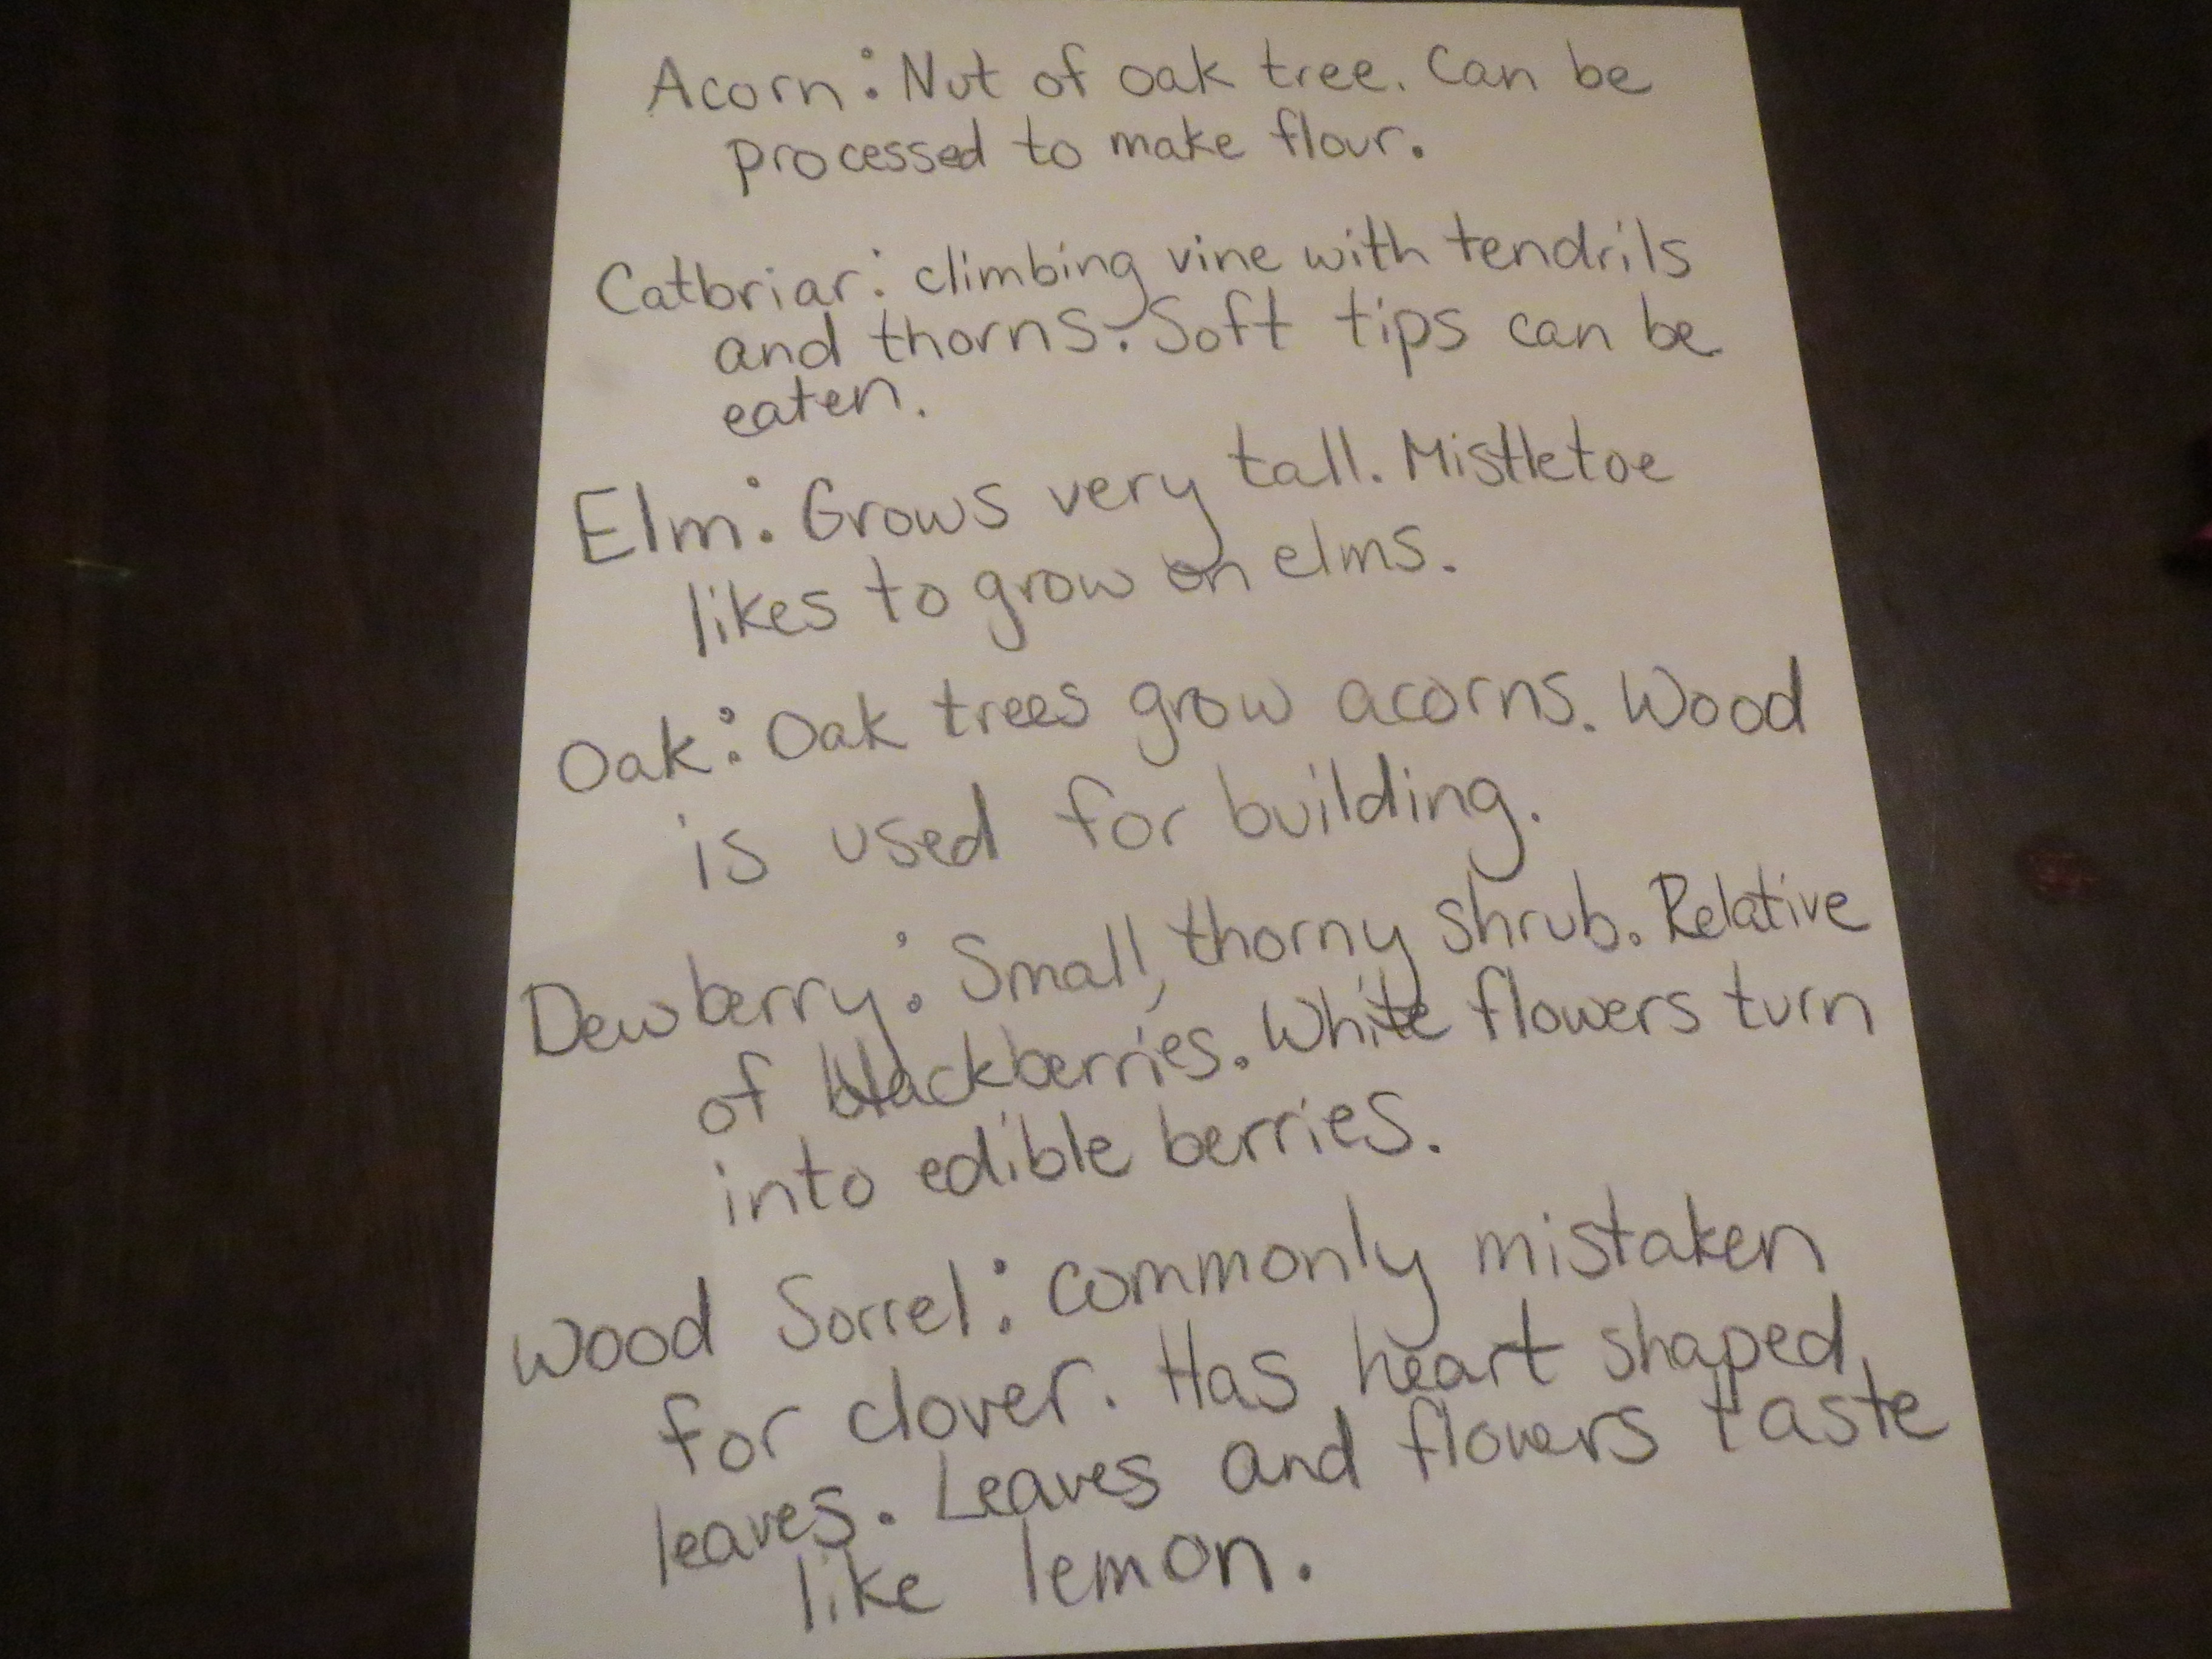 Acorn: Nut of oak tree. Can be
processed to make flour.
Catbriar: climbing vine with tendrils
and thorns. Soft tips can be
eaten.
Elm: Grows very tall. Mistletoe
likes to grow on elms.
Oak: Oak trees grow acorns. Wood
is used for building.
Dewberry: Small, thorny shrub. Relative
of blackberries. White flowers turn
into edible berries.
Wood Sorrel: commonly mistaken
for clover. Has heart shaped
leaves. Leaves and flowers taste
like lemon.